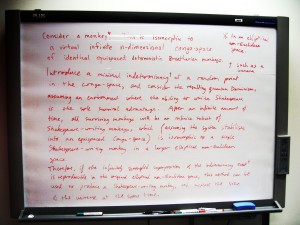 Consider a monkey. This is isomorphic to
a virtual infinite n-dimensional conga-space
of identical equipotent deterministic Brocktarian monkeys.
Introduce a minimal indeterminacy† at a random point
in the conga-space, and consider the resulting German Dominoes,
assuming an environment where the ability to write Shakespeare
is the sole survival advantage. After an infinite amount of
time, all surviving monkeys will be an infinite cohort of
Shakespeare-writing monkeys, which (assuming the system stabilises
into an equipotent conga-space) is isomorphic to a single
Shakespeare-writing monkey in a larger elliptical non-Euclidean
space.
Therefore, if the infinitely complex
is reproducible in the original elliptical non-Euclidean space, this method can be
used to produce a Shakespeare-writing monkey
of the universe at the same time.
* In an elliptical
non-Euclidean
space
† such as a
banana